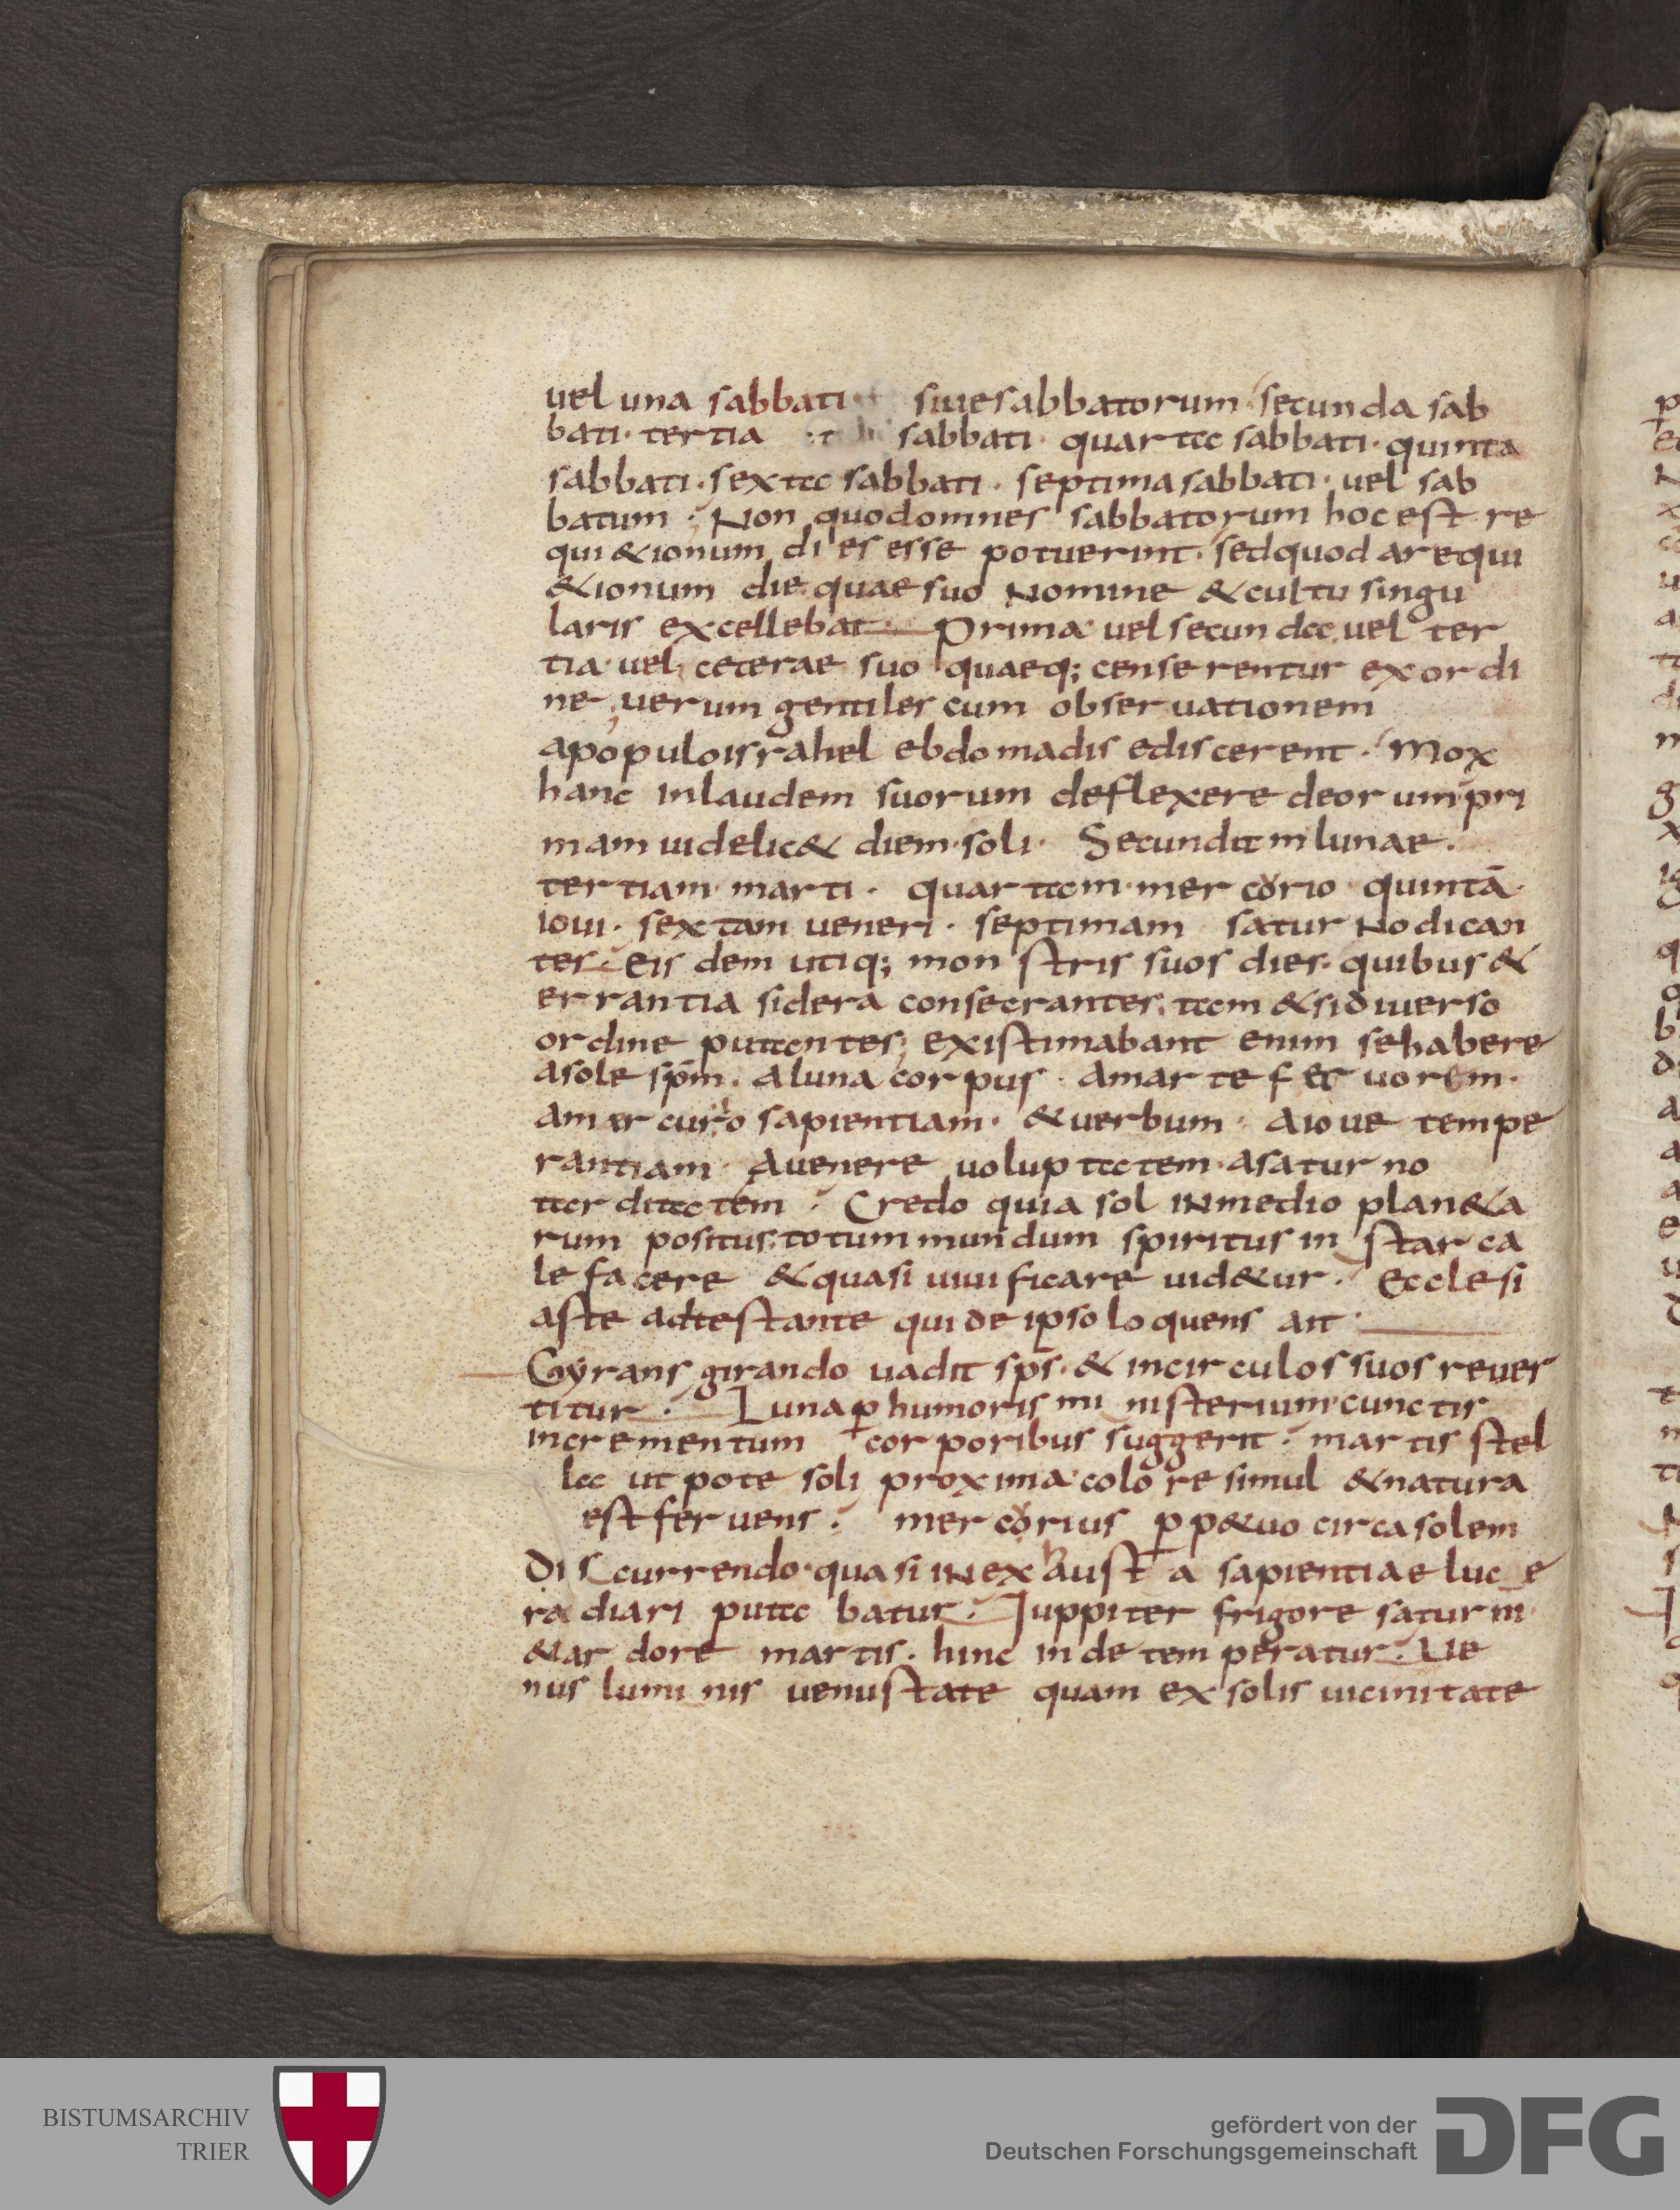 uel una sabbati siue sabbatorum secunda sab
bati · tertia sabbati · quarta sabbati · quinta
sabbati · sexta sabbati · septima sabbati · uel sab
batum · Non quod omnes sabbatorum hoc est re
qui&ionum dies esse potuerint · sed quod a requi
&ionum die quae suo Nomine & cultu singu
laris excellebat · Prima uel secunda uel ter
tia · uel ceterae suo quaeq; censerentur ex ordi
ne, uerum gentiles cum obseruationem
a populo israhel ebdomadis ediscerent · mox
hanc in laudem suorum deflexere deorum pri
mam uidelic& diem · soli · Secundam lunae ·
tertiam · marti · quartam · mercorio quintā ·
ioui · sextam ueneri · septimam saturNo dican
tes · eisdem utiq; monstris suos dies · quibus &
errantia sidera consecrantes, tam &si diuerso
ordine putantes; existimabant enim se habere
a sole spm̄ · a luna corpus · a marte feruorem ·
a mercurio sapientiam · & uerbum · a ioue tempe
rantiam · a uenere uoluptatem · a saturno
tarditatem · Credo quia sol iNmedio plan&a
rum positus, totum mundum spiritus instar ca
lefacere & quasi uiuificare uid&ur · ecclesi
aste adtestante qui de ipso loquens ait ·
Gÿrans girando uadit sps̄ · & in circulos suos reuer
titur · Luna ꝑ humoris ministerium cunctis
incrementum corporibus suggerit · martis stel
la ut pote soli proxima colore simul & natura
est feruens · mercorius ꝑp&uo circa solem
discurrendo · quasi iNexhausta sapientiae luce
radiari putabatur · Juppiter frigore saturni ·
& ardore martis · hinc inde temperatur · Ue
nus luminis uenustate quam ex solis uicinitate
BISTUMSARCHIV
TRIER
gefördert von der
Deutschen Forschungsgemeinschaft
DFG